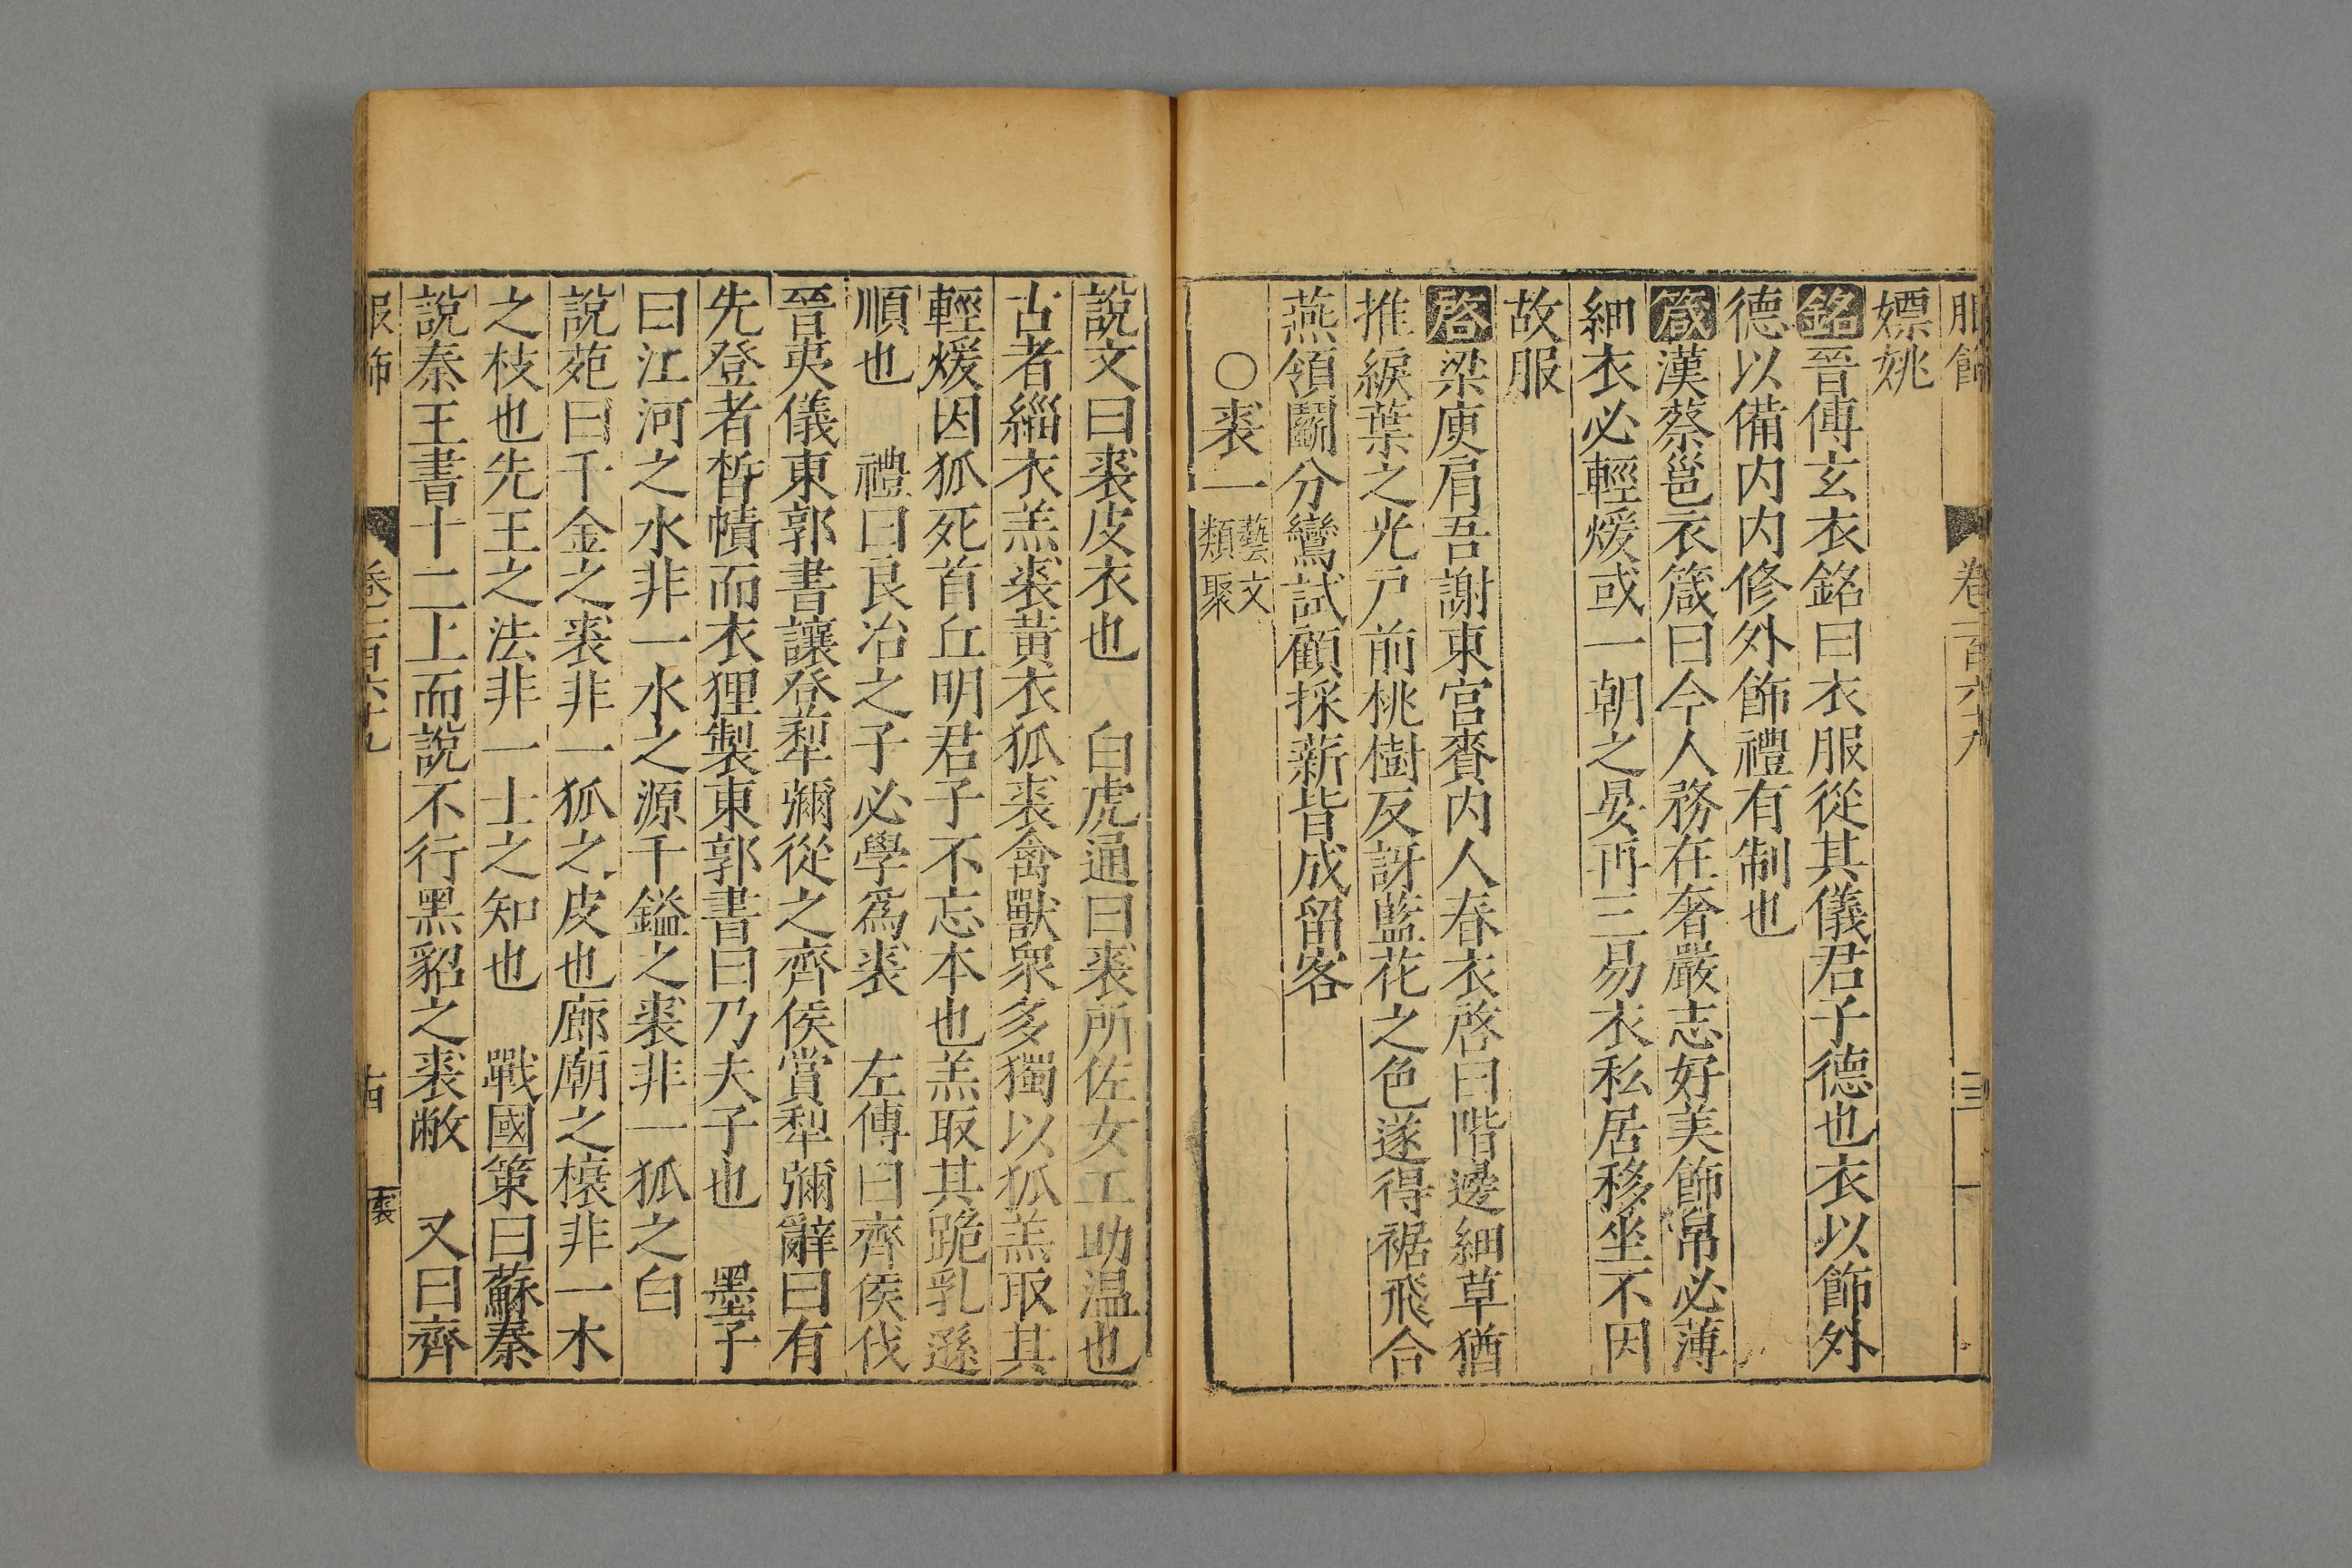 服飾 卷二百六十九
嫖姚
銘晉傅玄衣銘曰衣服從其儀君子德也衣以飾外
德以備内内修外飾禮有制也
箴漢蔡邕衣箴曰今人務在奢嚴志好美飾帛必薄
細衣必輕煖或一朝之晏再三易衣私居移坐不因
故服
啓梁庾肩吾謝東宮賚内人春衣啓曰階邊細草猶
推綟葉之光戸前桃樹反訝藍花之色遂得裾飛合
燕領鬬分鸞試顧採薪皆成留客
○裘一藝文類聚
說文曰裘皮衣也 白虎通曰裘所佐女工助温也
古者緇衣羔裘黄衣狐裘禽獸衆多獨以狐羔取其
輕煖因狐死首丘明君子不忘本也羔取其跪乳遜
順也 禮曰良冶之子必學爲裘 左傳曰齊侯伐
晉夷儀東郭書讓登犁彌從之齊侯賞犁彌辭曰有
先登者皙幘而衣狸製東郭書曰乃夫子也 墨子
曰江河之水非一水之源千鎰之裘非一狐之白
說苑曰千金之裘非一狐之皮也廊廟之榱非一木
之枝也先王之法非一士之知也 戰國策曰蘇秦
說秦王書十二上而說不行黑貂之裘敝 又曰齊
服飾 卷二百六十九 十四 裘